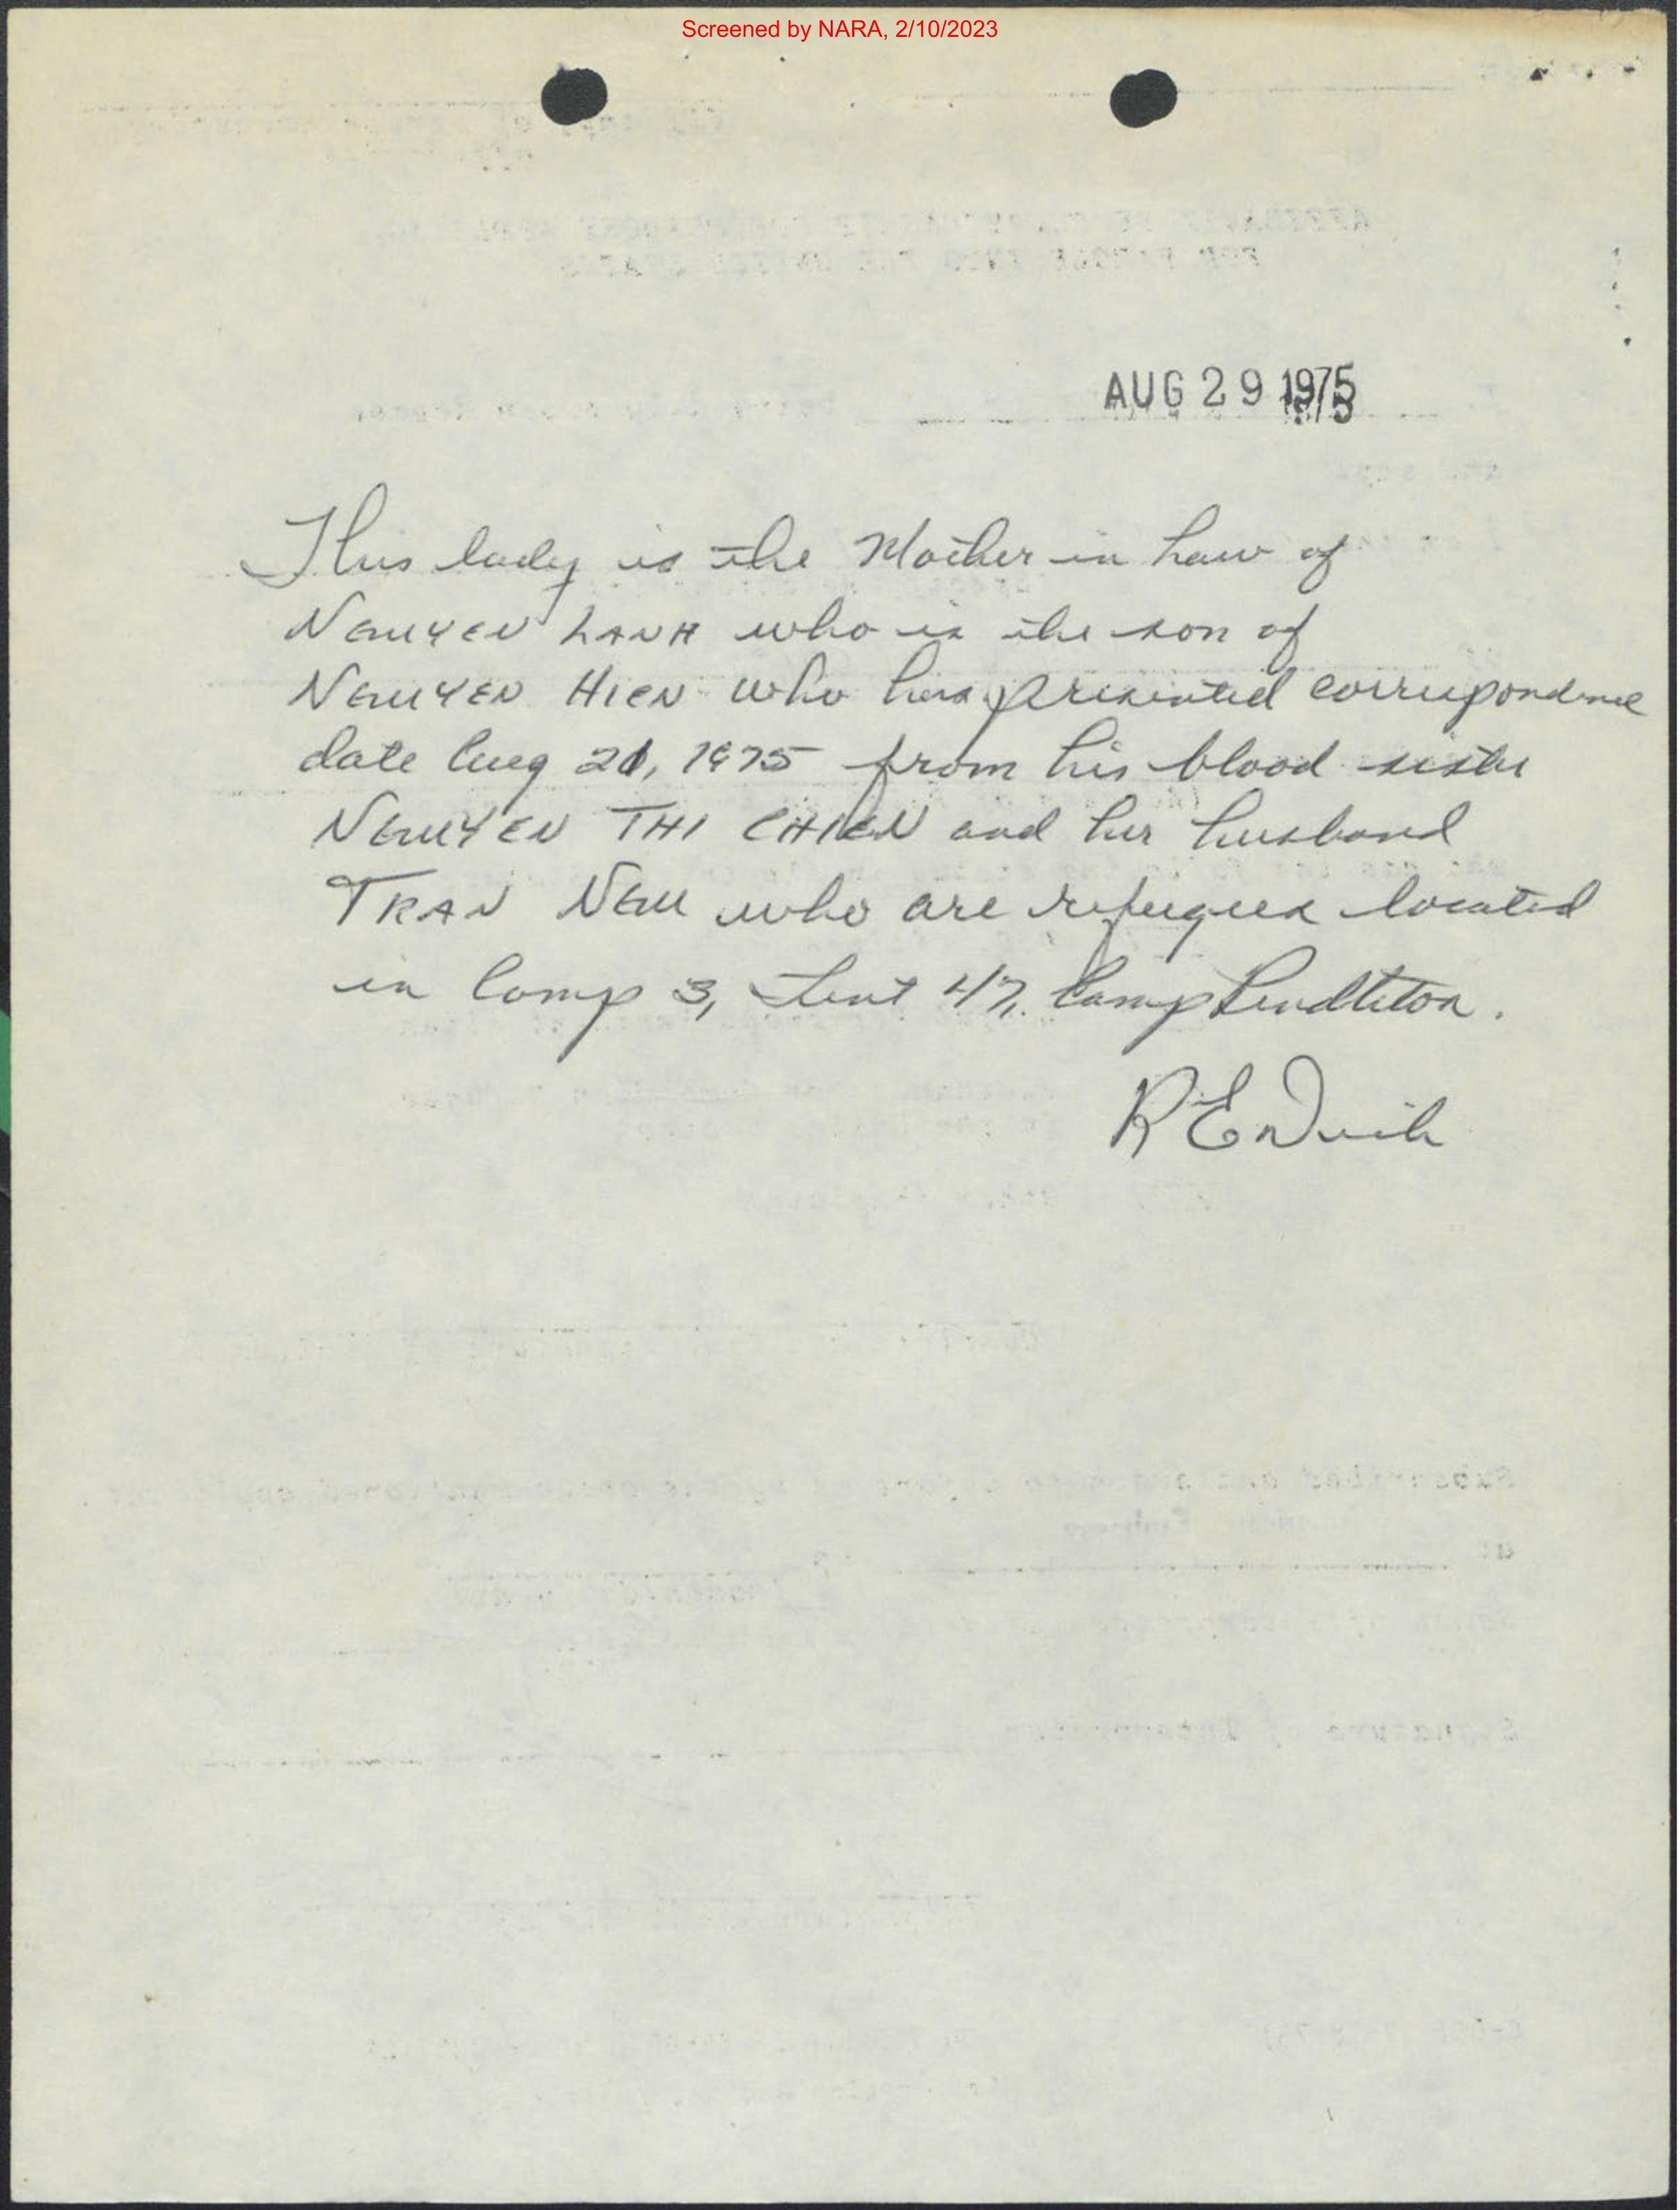 Screened by NARA, 2/10/2023
AUG 29 1975
This lady is the Mother in Law of
NGUYEN LANH who is the son of
NGUYEN HIEN who has presented correspondence
date Aug 21, 1975 from his blood sister
NGUYEN THI CHIEN and her husband
TRAN NGU who are refugees located
in Camp 3, tent 47, Camp Pendleton.
R E